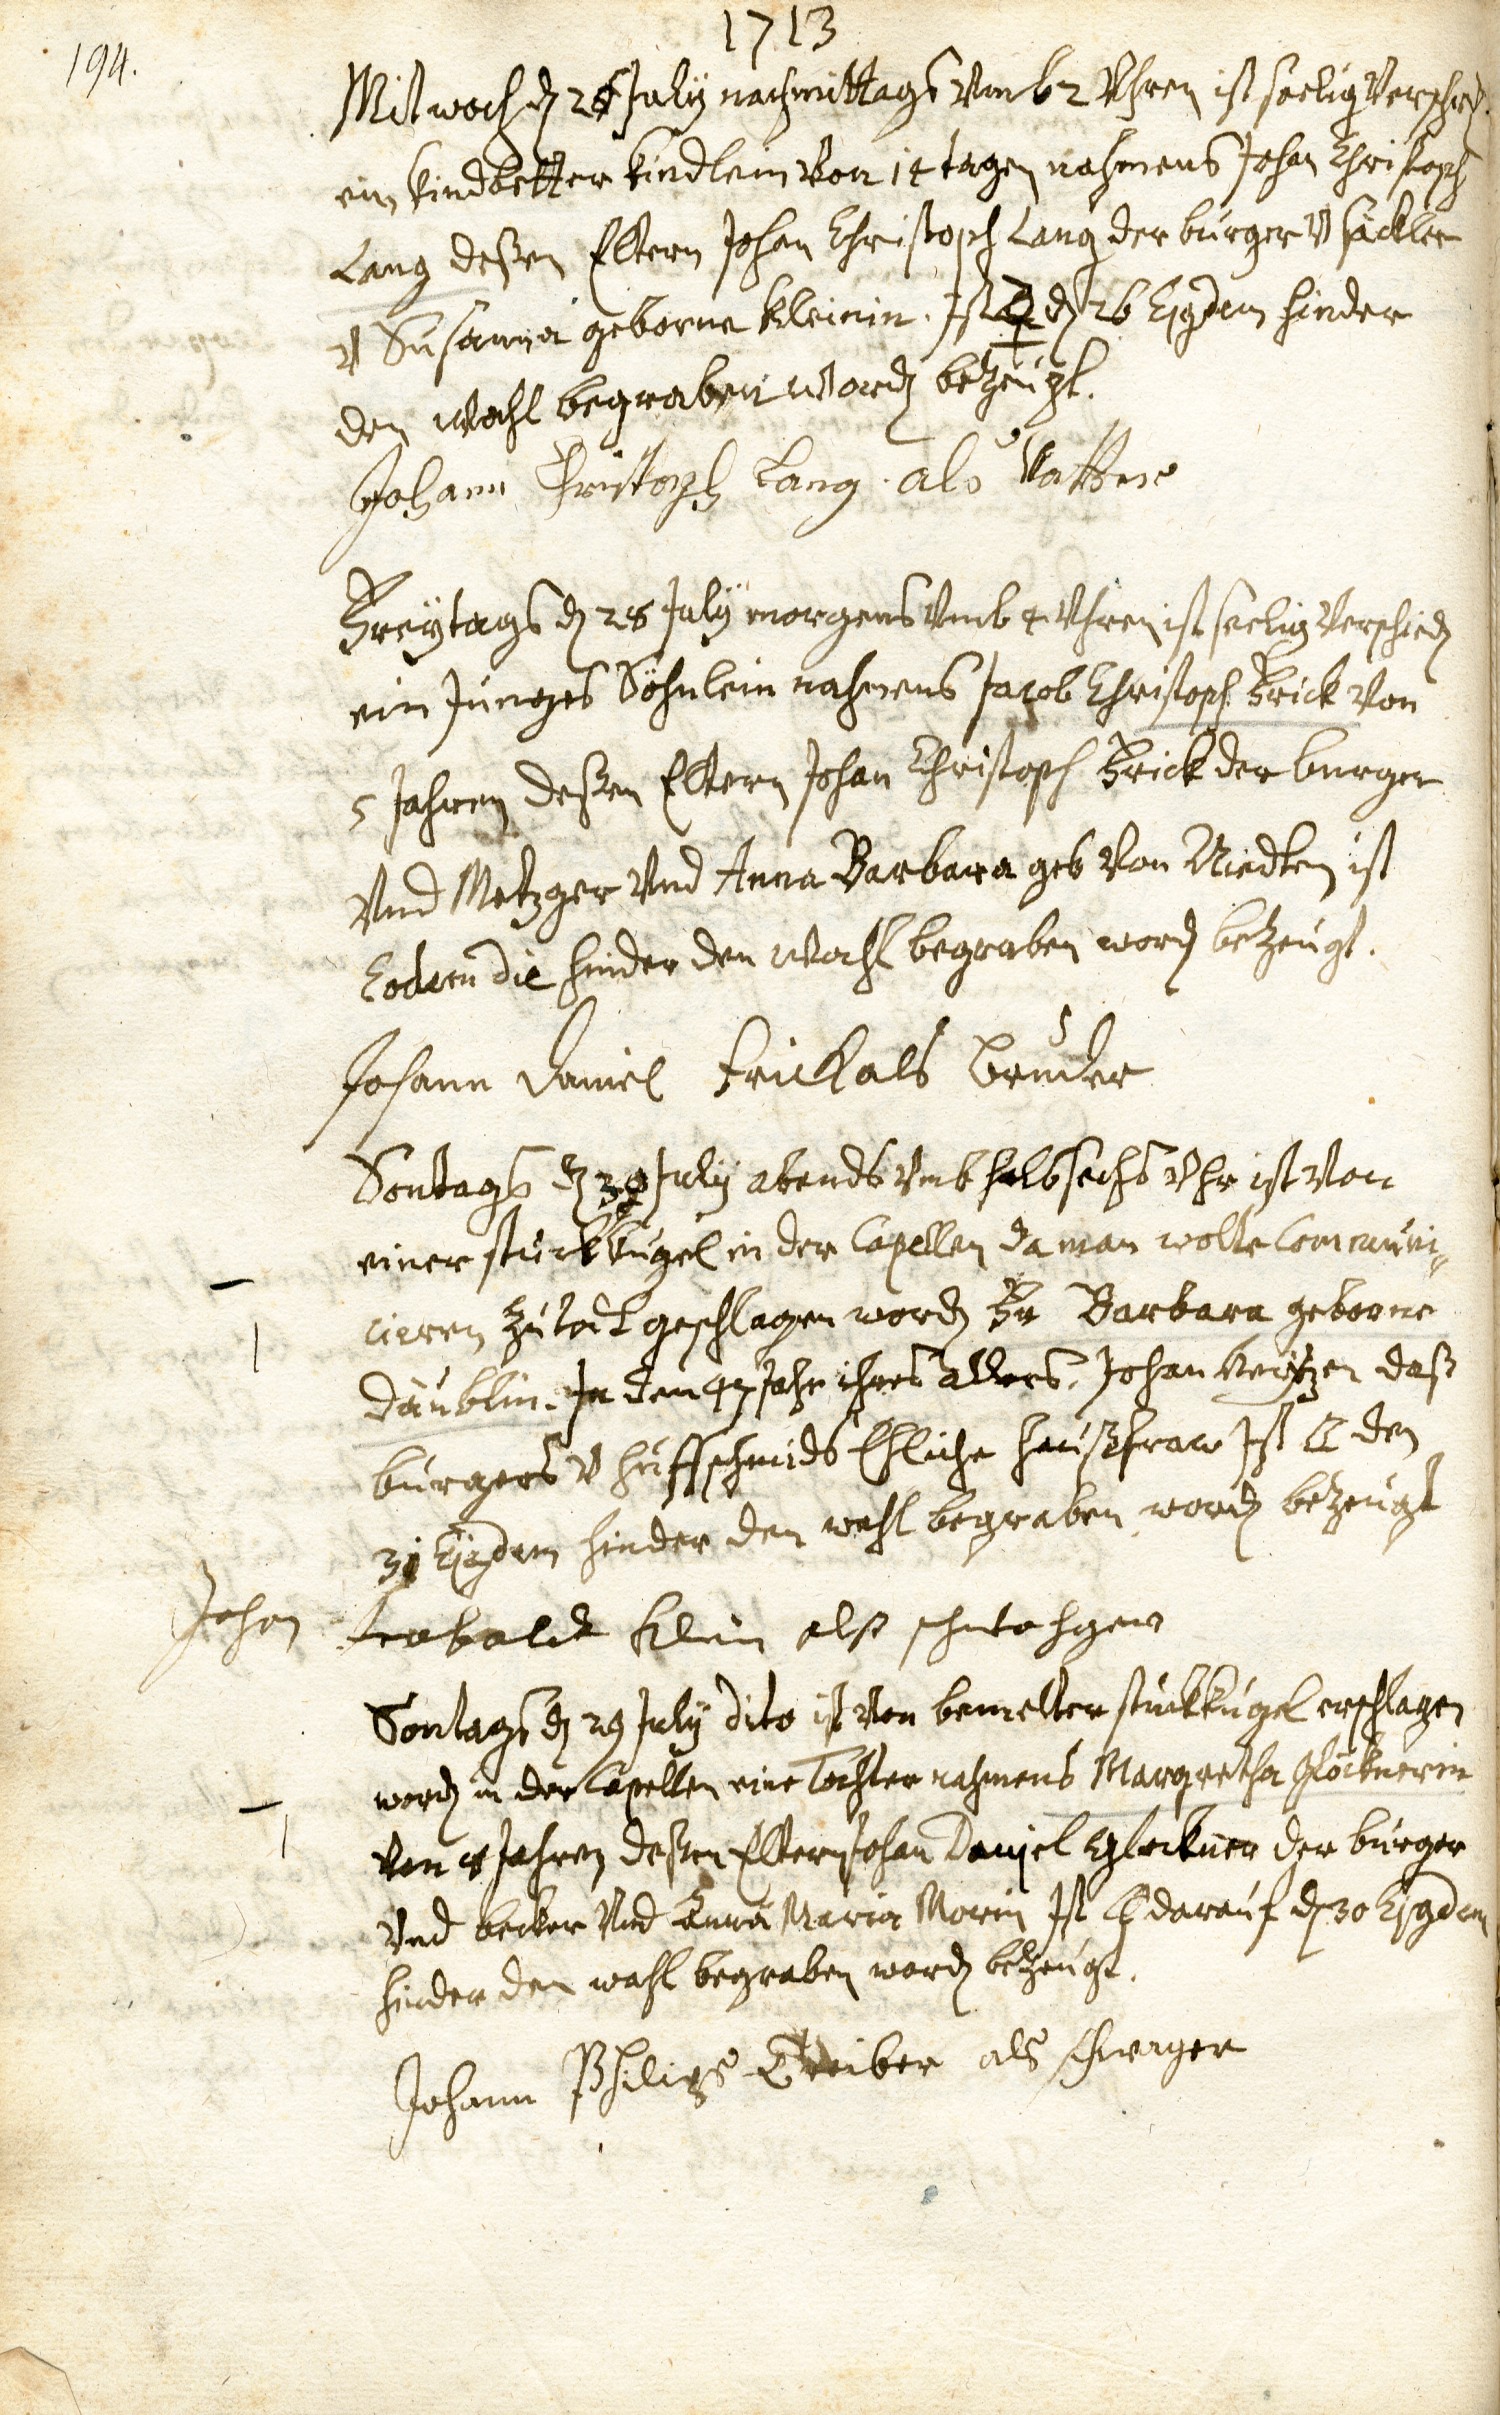 1713
194.
Mitwoch dz 26 July nachmittags umb 2 Uhren ist seelig verschid.
ein Kindbetter Kindlein von 14 tagen nahmens Johan Christoph
Lang deßen Eltern Johan Christoph Lang der burger v säckler
v Susanna geborne Kleinin. Ist d 26 Ejgdem hinder
den Wahl begraben word bezeugt.
Johann Christoph Lang als Vatter
Freytags d 28 July morgens umb 4 Uhren ist seelig verschied
ein junges Söhnlein nahmens Jacob Christoph Frick von
5 Jahren deßen Eltern Johan Christoph Frick der burger
und Metzger und Anna Barbara geb von Niedten ist
Eodem die hinder den Wahl begraben word bezeugt.
Johann Daniel Frick als Bruder
Sontags d 30 July abends umb halb sechs Uhr ist von
einer stuckkugel in der Capellen da man wolte Communi-
cieren zu todt geschlagen word Fr Barbara geborne
Däublin. In dem 47 Jahr ihres alters. Johan daß
burgers v huffschmids Ehliche haußfraw Ist den
31 Ejgdem hinder den wahl begraben word bezeugt
Johan Klein alß
Sontags d 29 July dito ist von bemelter stuckkugel erschlagen
word in der Capellen eine Tochter nahmens Margretha Glöcknerin
von 8 Jahren deßen Eltern Johan Daniel Glöckner der burger
und becker und Anna Maria Morin Ist darauf d 30 Ejgdem
hinder den wahl begraben word bezeugt.
Johann Philips Treiber als schwager